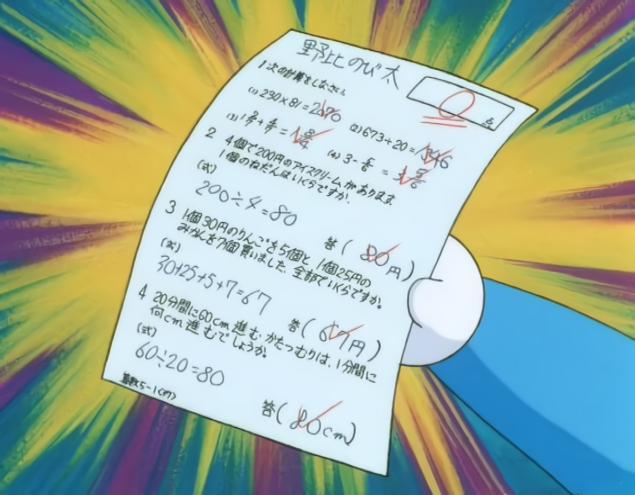 野比のび太
0点
1 次の計算をしなさい。
(1) 230×81=2670 (2) 673+20=
(3) (4) 3-
2 4個で200円のアイスクリームがあります
1個のねだんはいくらですか。
(式)
200÷4=80
答(80円)
3 1個30円のりんごを5個と1個25円の
みかんを7個買いました。全部でいくらですか。
(式)
30+25+5+7=67
答(67円)
4 20分間に60cm進むかたつむりは、1分間に
何cm進むでしょうか。
(式)
60÷20=80
答(80cm)
算数5-1(ア)